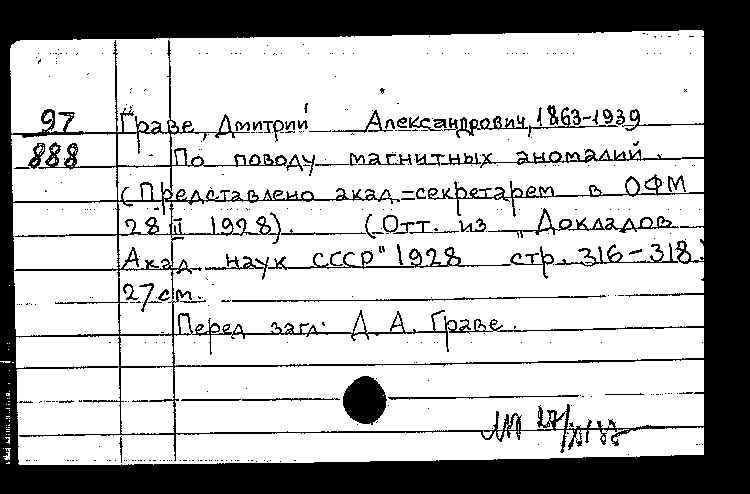 97 Граве, Дмитрий Александрович, 1863-1939
888 По поводу магнитных аномалий.
(Представлено акад.=секретарем в ОФМ
28 II 1928). (Отт. из „Докладов
Акад. наук СССР" 1928 стр. 316-318.)
27 см.
Перед загл: Д. А. Граве.
27/XI